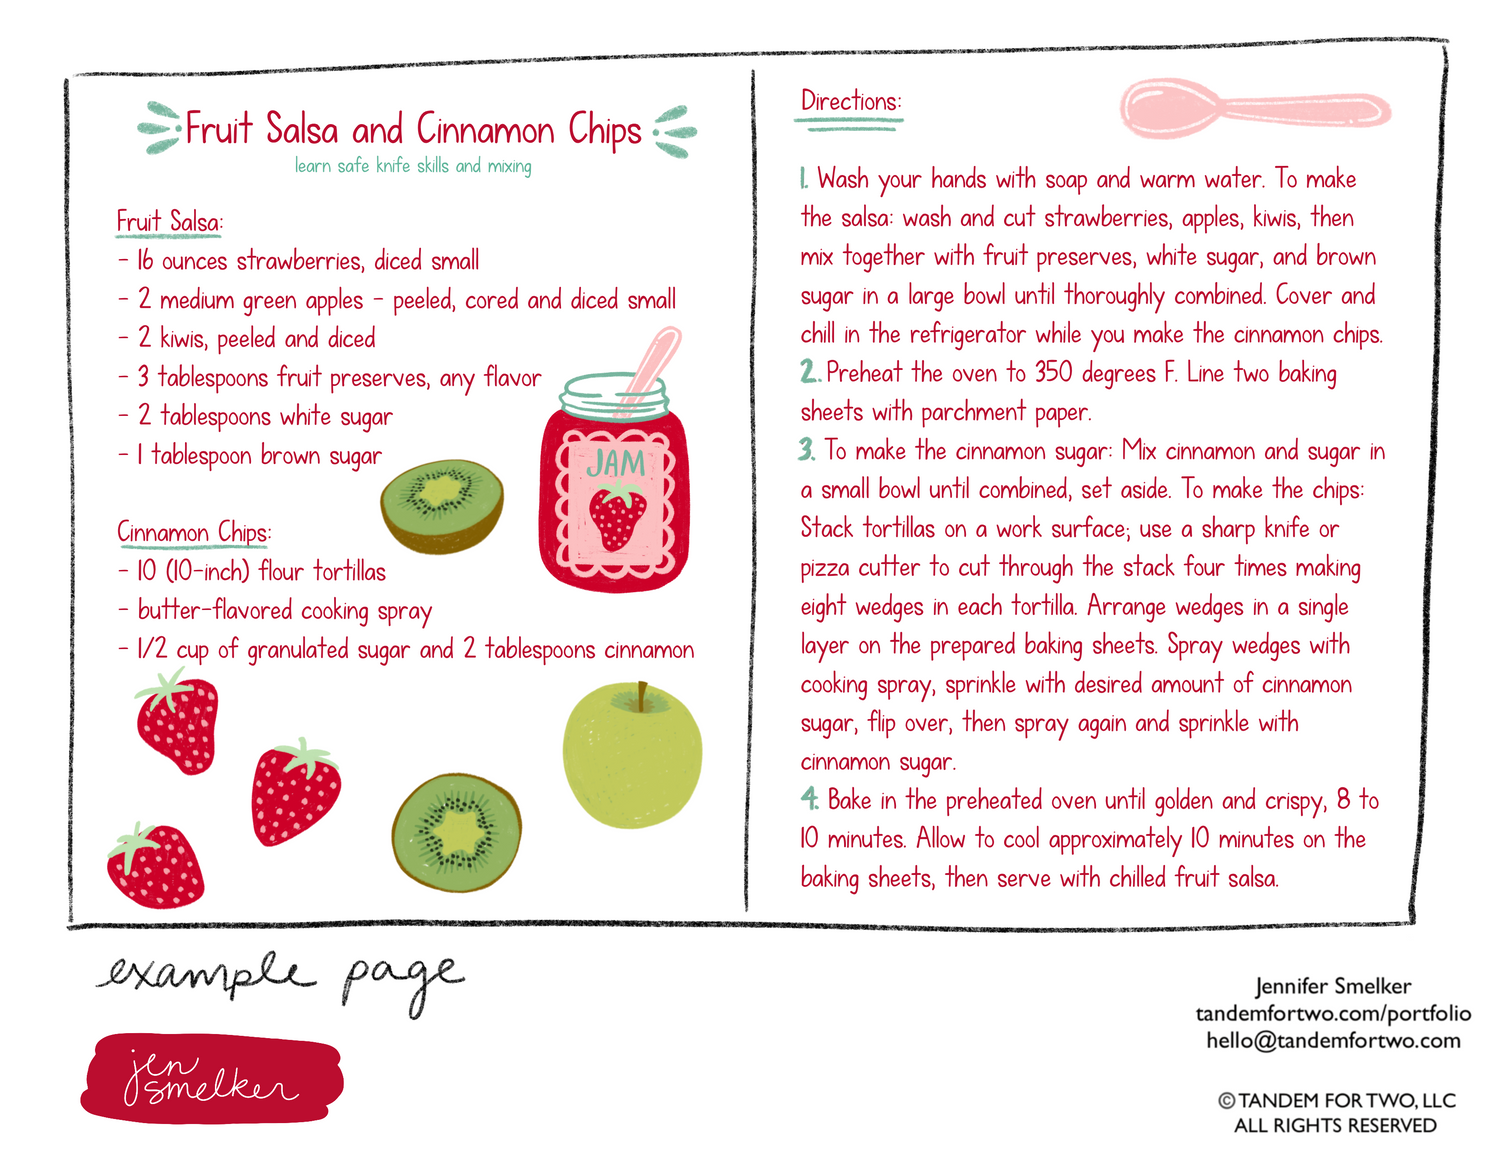 Fruit Salsa and Cinnamon Chips
learn safe knife skills and mixing
Fruit Salsa:
- 16 ounces strawberries, diced small
- 2 medium green apples - peeled, cored and diced small
- 2 kiwis, peeled and diced
- 3 tablespoons fruit preserves, any flavor
- 2 tablespoons white sugar
- 1 tablespoon brown sugar
JAM
Cinnamon Chips:
- 10 (10-inch) flour tortillas
- butter-flavored cooking spray
- 1/2 cup of granulated sugar and 2 tablespoons cinnamon
Directions:
1. Wash your hands with soap and warm water. To make
the salsa: wash and cut strawberries, apples, kiwis, then
mix together with fruit preserves, white sugar, and brown
sugar in a large bowl until thoroughly combined. Cover and
chill in the refrigerator while you make the cinnamon chips.
2. Preheat the oven to 350 degrees F. Line two baking
sheets with parchment paper.
3. To make the cinnamon sugar: Mix cinnamon and sugar in
a small bowl until combined, set aside. To make the chips:
Stack tortillas on a work surface; use a sharp knife or
pizza cutter to cut through the stack four times making
eight wedges in each tortilla. Arrange wedges in a single
layer on the prepared baking sheets. Spray wedges with
cooking spray, sprinkle with desired amount of cinnamon
sugar, flip over, then spray again and sprinkle with
cinnamon sugar.
4. Bake in the preheated oven until golden and crispy, 8 to
10 minutes. Allow to cool approximately 10 minutes on the
baking sheets, then serve with chilled fruit salsa.
example page
jen
smelker
Jennifer Smelker
tandemfortwo.com/portfolio
hello@tandemfortwo.com
© TANDEM FOR TWO, LLC
ALL RIGHTS RESERVED